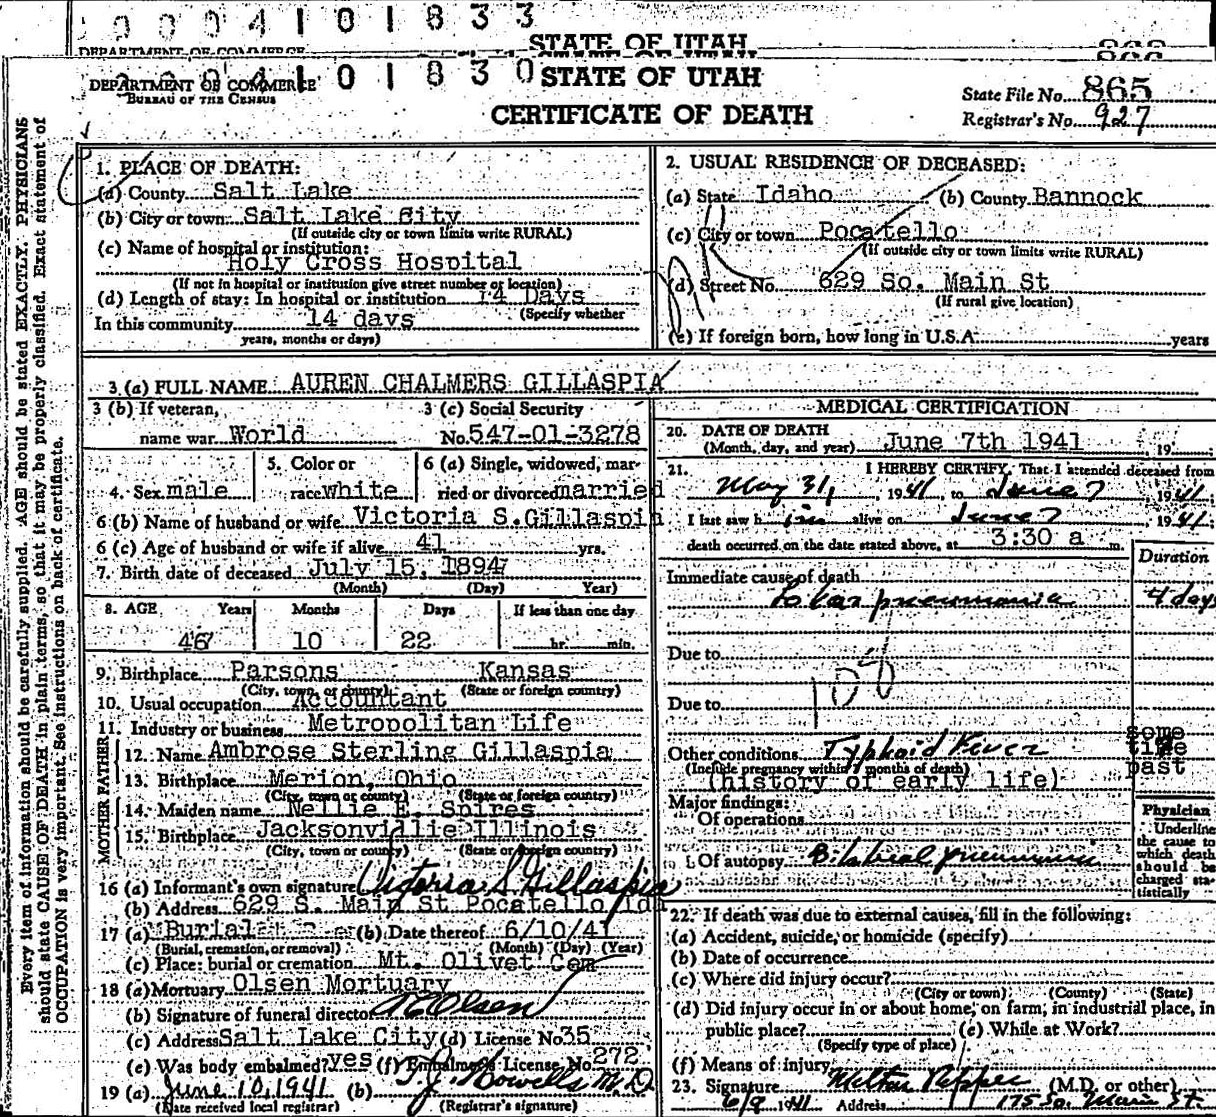 0004101833
STATE OF UTAH
DEPARTMENT OF COMMERCE
0004101830
DEPARTMENT OF COMMERCE
BUREAU OF THE CENSUS
STATE OF UTAH
CERTIFICATE OF DEATH
State File No. 865
Registrar's No. 927
Every item of information should be carefully supplied. AGE should be stated EXACTLY. PHYSICIANS
should state CAUSE OF DEATH in plain terms, so that it may be properly classified. Exact statement of
OCCUPATION is very important. See instructions on back of certificate.
1. PLACE OF DEATH:
(a) County Salt Lake
(b) City or town Salt Lake City
(If outside city or town limits write RURAL)
(c) Name of hospital or institution:
Holy Cross Hospital
(If not in hospital or institution give street number or location)
(d) Length of stay: In hospital or institution 14 Days
(Specify whether
In this community 14 days
years, months or days)
2. USUAL RESIDENCE OF DECEASED:
(a) State Idaho (b) County Bannock
(c) City or town Pocatello
(If outside city or town limits write RURAL)
(d) Street No. 629 So. Main St
(If rural give location)
(e) If foreign born, how long in U.S.A. years
3 (a) FULL NAME AUREN CHALMERS GILLASPIA
3 (b) If veteran,
name war World
3 (c) Social Security
No. 547-01-3278
4. Sex male
5. Color or
race white
6 (a) Single, widowed, mar-
ried or divorced married
6 (b) Name of husband or wife Victoria S. Gillaspia
6 (c) Age of husband or wife if alive 41 yrs.
7. Birth date of deceased July 15, 1894
(Month) (Day) Year)
8. AGE Years Months Days If less than one day
46 10 22 hr. min.
9. Birthplace Parsons Kansas
(City, town, or county) (State or foreign country)
10. Usual occupation Accountant
11. Industry or business Metropolitan Life
FATHER
12. Name Ambrose Sterling Gillaspia
13. Birthplace Merion, Ohio
(City, town or county) (State or foreign country)
MOTHER
14. Maiden name Nellie E. Spires
15. Birthplace Jacksonvilie Illinois
(City, town or county) (State or foreign country)
16 (a) Informant's own signature Victoria S. Gillaspia
(b) Address 629 S. Main St Pocatello, Ida
17 (a) Burial (b) Date thereof 6/10/41
(Burial, cremation, or removal) (Month) (Day) (Year)
(c) Place: burial or cremation Mt. Olivet Cem
18 (a) Mortuary Olsen Mortuary
(b) Signature of funeral director Olsen
(c) Address Salt Lake City (d) License No. 35
(e) Was body embalmed? yes (f) Embalmer's License No. 272
19 (a) June 10, 1941 (b) M.D.
(Date received local registrar) (Registrar's signature)
MEDICAL CERTIFICATION
20. DATE OF DEATH
(Month, day, and year) June 7th 1941, 19
21. I HEREBY CERTIFY, That I attended deceased from
May 31, 1941, to June 7, 1941.
I last saw h im alive on June 7, 1941.
death occurred on the date stated above, at 3:30 a m.
Duration
Immediate cause of death
Lobar pneumonia 4 days
Due to
108
Due to
Other conditions Typhoid Fever
(Include pregnancy within 3 months of death)
(history of early life)
some
time
past
Major findings:
Of operations
Of autopsy Bilateral pneumonia
Physician
Underline
the cause to
which death
should be
charged sta-
tistically
22. If death was due to external causes, fill in the following:
(a) Accident, suicide, or homicide (specify)
(b) Date of occurrence
(c) Where did injury occur?
(City or town) (County) (State)
(d) Did injury occur in or about home, on farm, in industrial place, in
public place? (e) While at Work?
(Specify type of place)
(f) Means of injury
23. Signature Milton Pepper (M.D. or other)
6/9 1941 Address 175 So. Main St.